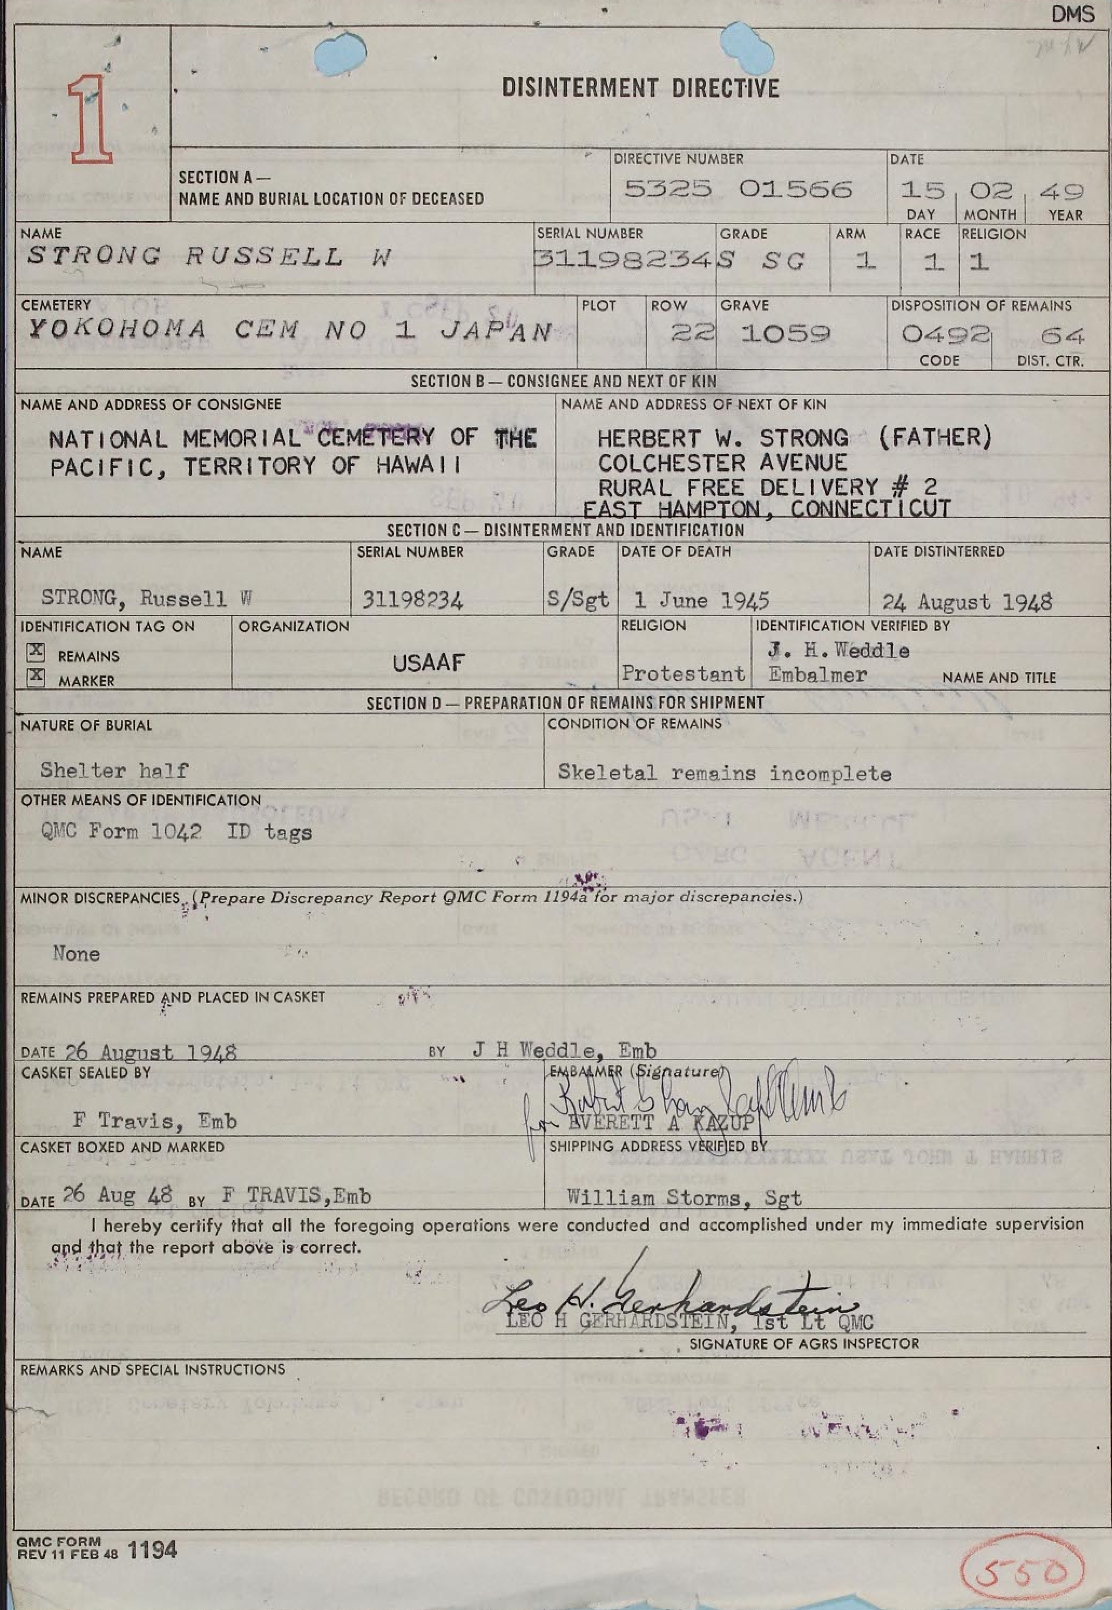 DMS
1
DISINTERMENT DIRECTIVE
SECTION A —
NAME AND BURIAL LOCATION OF DECEASED
DIRECTIVE NUMBER
5325 01566
DATE
15 02 49
DAY MONTH YEAR
NAME
STRONG RUSSELL W
SERIAL NUMBER
31198234S
GRADE
SG
ARM
1
RACE
1
RELIGION
1
CEMETERY
YOKOHOMA CEM NO 1 JAPAN
PLOT
ROW
22
GRAVE
1059
DISPOSITION OF REMAINS
0492 64
CODE DIST. CTR.
SECTION B — CONSIGNEE AND NEXT OF KIN
NAME AND ADDRESS OF CONSIGNEE
NATIONAL MEMORIAL CEMETERY OF THE
PACIFIC, TERRITORY OF HAWAII
NAME AND ADDRESS OF NEXT OF KIN
HERBERT W. STRONG (FATHER)
COLCHESTER AVENUE
RURAL FREE DELIVERY # 2
EAST HAMPTON, CONNECTICUT
SECTION C — DISINTERMENT AND IDENTIFICATION
NAME
STRONG, Russell W
SERIAL NUMBER
31198234
GRADE
S/Sgt
DATE OF DEATH
1 June 1945
DATE DISTINTERRED
24 August 1948
IDENTIFICATION TAG ON
X REMAINS
X MARKER
ORGANIZATION
USAAF
RELIGION
Protestant
IDENTIFICATION VERIFIED BY
J. H. Weddle
Embalmer NAME AND TITLE
SECTION D — PREPARATION OF REMAINS FOR SHIPMENT
NATURE OF BURIAL
Shelter half
CONDITION OF REMAINS
Skeletal remains incomplete
OTHER MEANS OF IDENTIFICATION
QMC Form 1042 ID tags
MINOR DISCREPANCIES (Prepare Discrepancy Report QMC Form 1194a for major discrepancies.)
None
REMAINS PREPARED AND PLACED IN CASKET
DATE 26 August 1948 BY J H Weddle, Emb
CASKET SEALED BY
F Travis, Emb
EMBALMER (Signature)
for EVERETT A KAZUP
CASKET BOXED AND MARKED
DATE 26 Aug 48 BY F TRAVIS,Emb
SHIPPING ADDRESS VERIFIED BY
William Storms, Sgt
I hereby certify that all the foregoing operations were conducted and accomplished under my immediate supervision
and that the report above is correct.
Leo H. Gerhardstein
LEO H GERHARDSTEIN, 1st Lt QMC
SIGNATURE OF AGRS INSPECTOR
REMARKS AND SPECIAL INSTRUCTIONS
QMC FORM
REV 11 FEB 48 1194
550